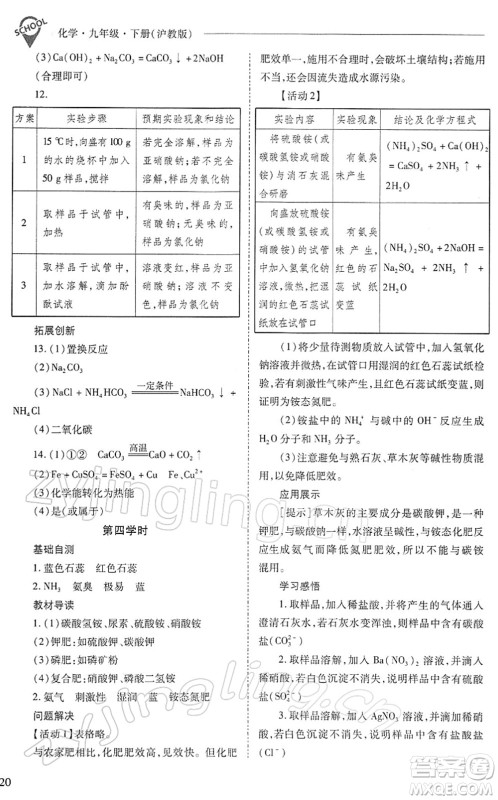 SCHOOL
化学·九年级·下册(沪教版)
(3)Ca(OH)₂ + Na₂CO₃ ══ CaCO₃↓ + 2NaOH
(合理即可)
12.
方案 实验步骤 预期实验现象和结论
1
15 ℃时,向盛有 100 g
的水的烧杯中加入
50 g 样品,搅拌
若完全溶解,样品为
亚硝酸钠;若不能完
全溶解,样品为氯化钠
2
取样品于试管中,
加热
有臭味的,样品为亚
硝酸钠;无臭味的,
样品为氯化钠
3
取样品于试管中,
加水溶解,滴加酚
酞试液
溶液变红,样品为亚
硝酸钠;溶液不变
色,样品为氯化钠
拓展创新
13. (1)置换反应
(2)Na₂CO₃
(3)NaCl + NH₄HCO₃ 一定条件══ NaHCO₃↓ +
NH₄Cl
(4)二氧化碳
14. (1)①② CaCO₃ 高温══ CaO + CO₂↑
(2)Fe + CuSO₄ ══ FeSO₄ + Cu Fe、Cu²⁺
(3)化学能转化为热能
(4)是(或属于)
第四学时
基础自测
1. 蓝色石蕊 红色石蕊
2. NH₃ 氨臭 易 蓝
教材导读
1. (1)碳酸氢铵、尿素、硫酸铵、硝酸铵
(2)钾肥:如硫酸钾、氯化钾
(3)磷肥:如磷矿粉
(4)复合肥:硝酸钾、磷酸二氢铵
2. 氨气 刺激性 湿润 蓝 铵态氮肥
问题解决
【活动 1】略。
与农家肥相比,化肥肥效高,见效快。但化肥
肥效单一,施用不合理时,会破坏土壤结构;而且
会因流失造成水源污染。
【活动 2】
实验内容 实验现象 结论及化学方程式
将硫酸铵(或
碳酸氢铵或硝
酸铵)与消石灰
混合研磨
有氨臭
味产生
(NH₄)₂SO₄ + Ca(OH)₂
══ CaSO₄ + 2NH₃↑ +
2H₂O
向盛放硫酸铵
(或碳酸氢铵或
硝酸铵)的试管
中加入氢氧化
钠溶液,并微
热,然后,把湿
润的红色石蕊
试纸放在试管
口
有氨臭
味产生,
湿润的
红色的石
蕊试纸
变蓝
(NH₄)₂SO₄ + 2NaOH ══
Na₂SO₄ + 2NH₃↑ +
2H₂O
(1)将少量待测物质放入试管,加入氢氧化
钠溶液并微热,在试管口用湿润的红色石蕊试纸检
验,若有刺激性气味产生,并且红色石蕊试纸变蓝,
则为铵态氮肥。
(2)铵盐中的 NH₄⁺ 与碱中的 OH⁻ 反应生成
H₂O 和 NH₃。
(3)注意避免与熟石灰、草木灰等碱性物质混
合使用,以免降低肥效。
应用展示
[提示]草木灰的主要成分是碳酸钾,是一种
钾肥,碳酸钾溶于水显碱性,与铵态化肥反应,
生成氨气而降低氮肥肥效,所以不能与碳酸氢铵
等铵盐混用。
学习感悟
1. 取样品,加入稀盐酸,并将产生的气体通入
澄清石灰水,若石灰水变浑浊,则样品中含碳酸盐
(CO₃²⁻)
2. 取样品溶解,加入 Ba(NO₃)₂ 溶液,并滴加
稀硝酸,若产生不溶的白色沉淀,则样品中含硫酸盐
(SO₄²⁻)
3. 取样品溶解,加入 AgNO₃ 溶液,并滴加稀
硝酸,若产生不溶的白色沉淀,则样品中含盐酸盐
(Cl⁻)
20
zyjingling.com
作业精灵